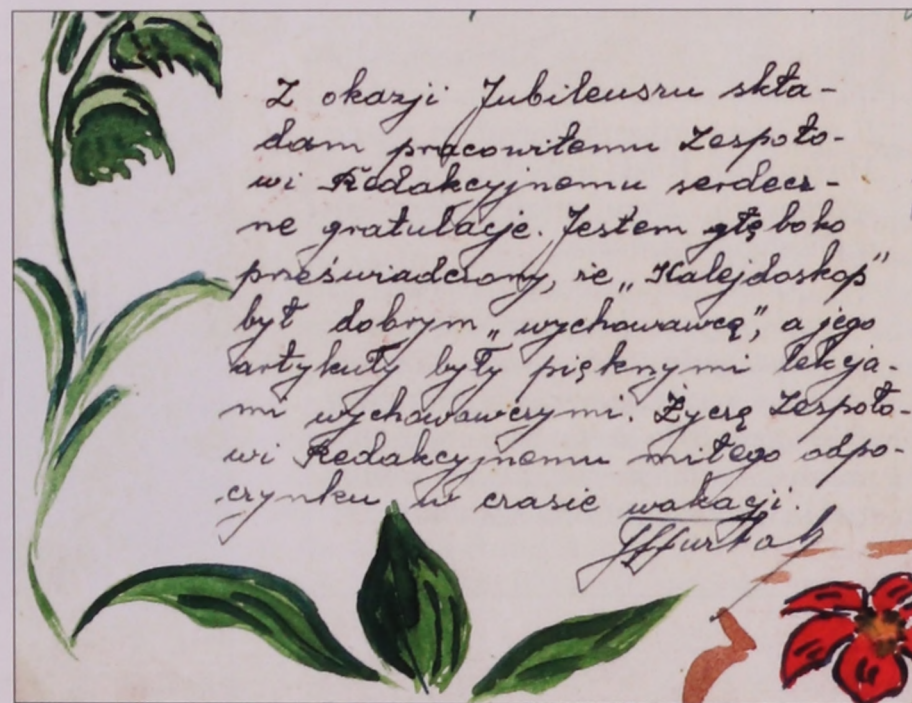 Z okazji Jubileuszu skła-
dam pracowitemu Zespoło-
wi Redakcyjnemu serdecz-
ne gratulacje. Jestem głęboko
przeświadczony, że „Kalejdoskop"
był dobrym „wychowawcą", a jego
artykuły były pięknymi lekcja-
mi wychowawczymi. Życzę Zespoło-
wi Redakcyjnemu miłego odpo-
czynku w czasie wakacji.